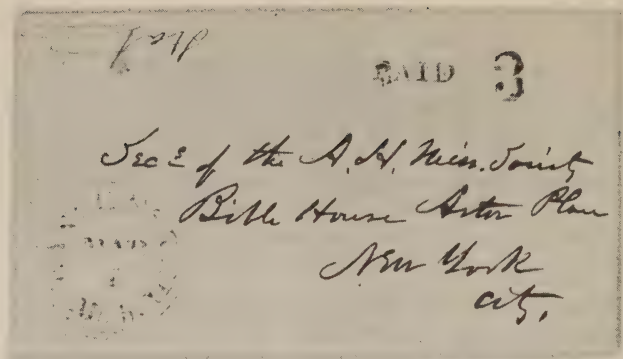 PAID 3
Secʳ of the A. H. Miss. Society
Bible House Astor Place
New York
City.